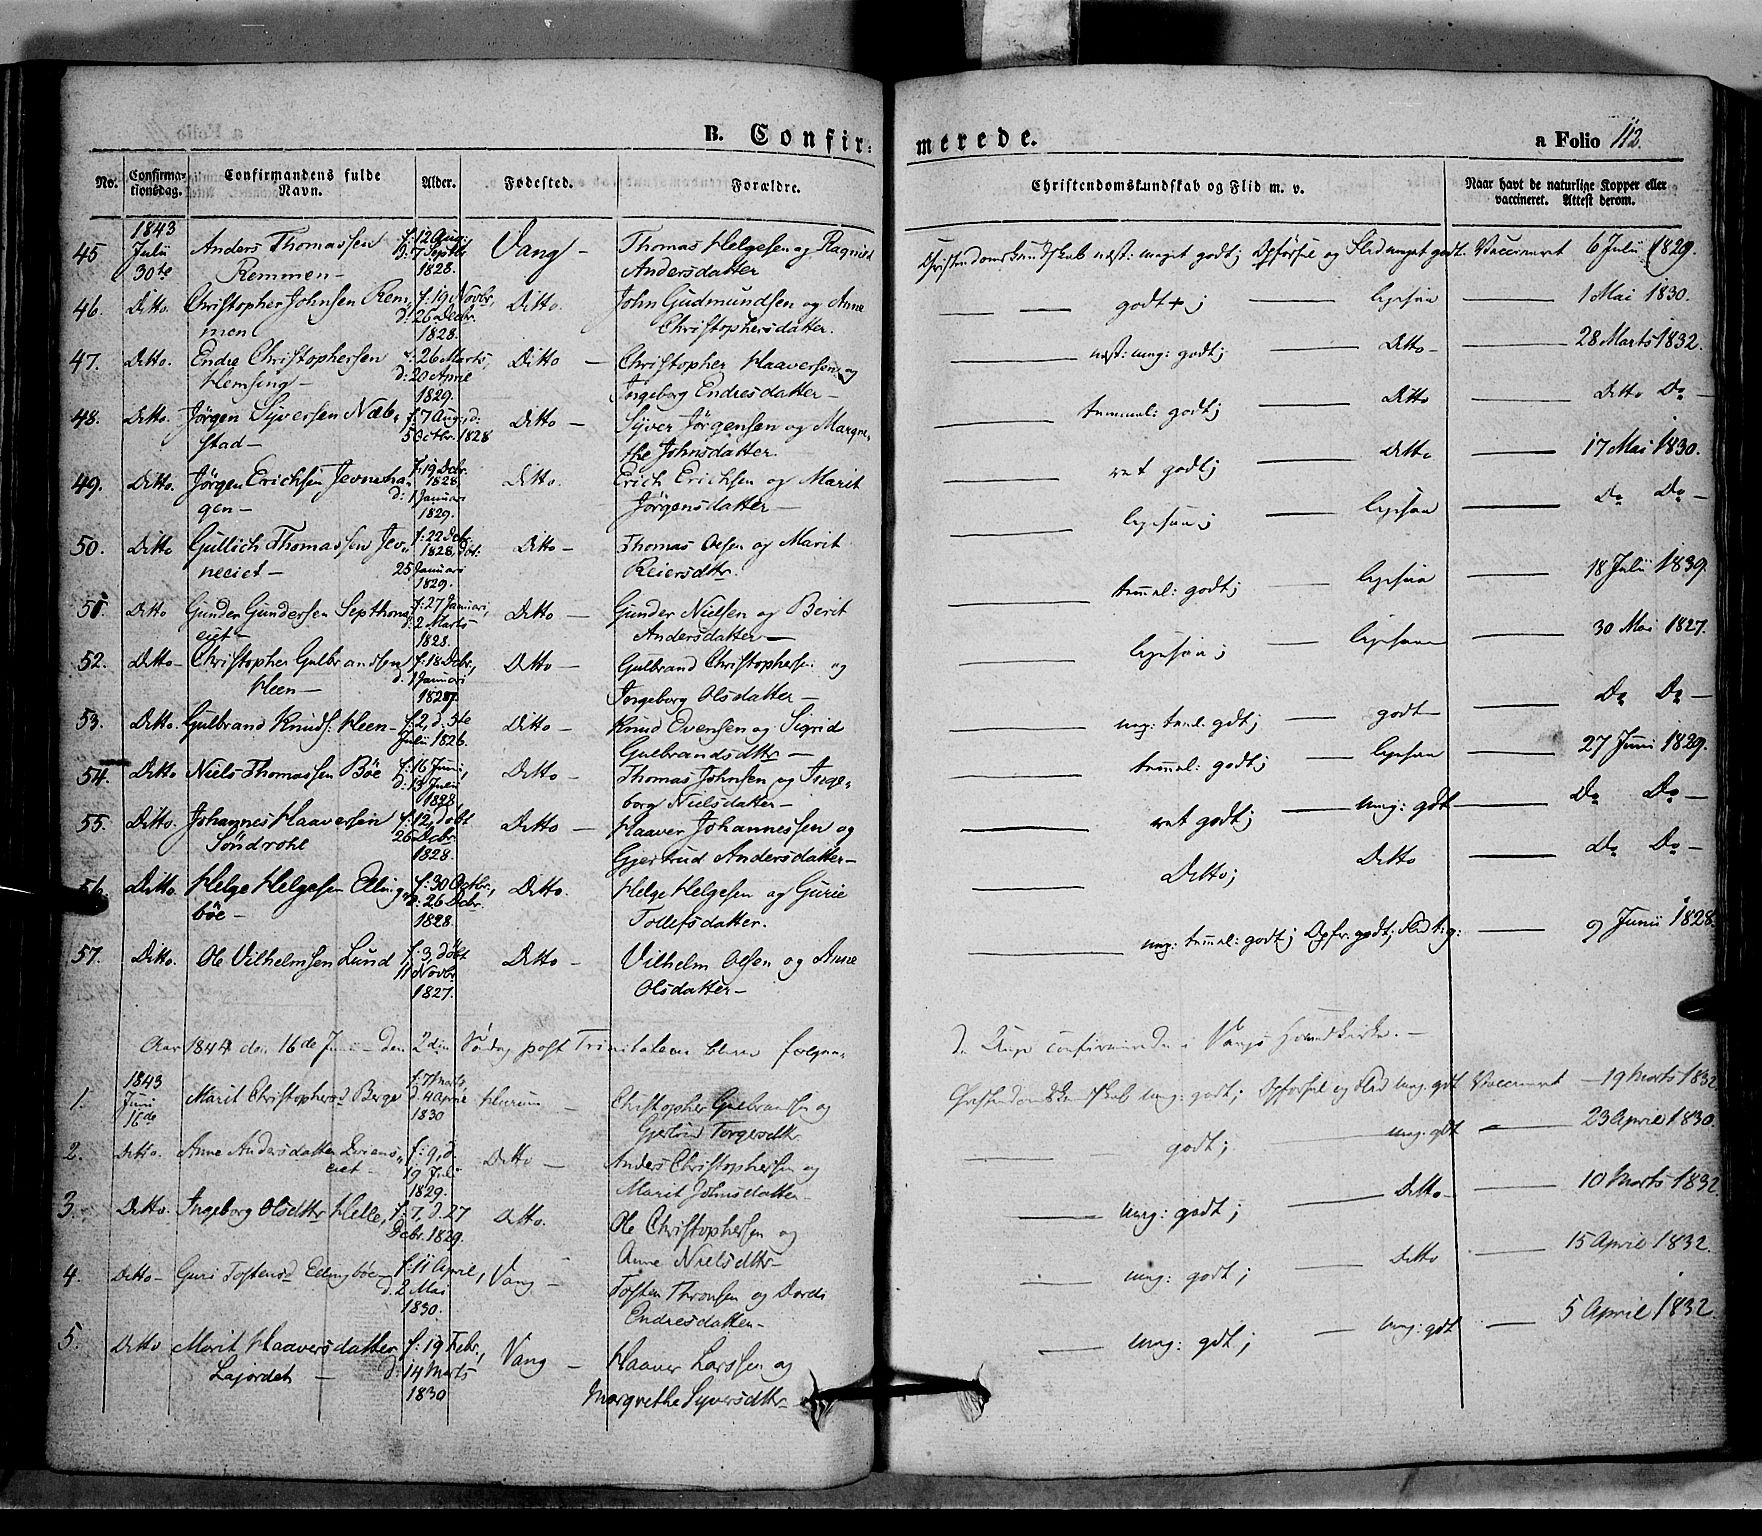 B. Confir= merede. a Folio 112.
No. Confirma-tionsdag. Confirmandens fulde Navn. Alder. Fødested. Forældre. Christendomskundskab og Flid m. v. Naar havt de naturlige Kopper eller vaccineret. Attest derom.
45 1843 Julii 30te Anders Thomassen Remmen – f: 12 Aug: D: 7 Septbr 1828. Vang – Thomas Helgesen og Ragnild Andersdatter Christendomskundskab næst: meget godt; Opførsel og Flid meget godt. Vaccineret 6 Julii 1829.
46. Ditto. Christopher Johnsen Remmen f: 19 Novbr, d: 26 Decbr. 1828. Ditto. John Gudmundsen og Anne Christophersdatter. godt + ; ligesaa 1 Mai 1830.
47. Ditto. Endre Christophersen Hemsing – f: 26 Marts, d: 20 Aprie 1829. Ditto – Christopher Haaversen og Ingeborg Endresdatter – næst: mg: godt; Ditto – 28 Marts 1832.
48. Ditto. Jørgen Syversen Næbstad – f: 7 Aug, d: 5 Octbr. 1828 Ditto – Syver Jørgensen og Margrethe Johnsdatter. temmel: godt; Ditto Ditto Do –
49. Ditto. Jørgen Erichsen Jevnehagen – f: 19 Dcbr. 1828 d: 1 Januari 1829. Ditto. Erich Erichsen og Marit Jørgensdatter – ret godt; Ditto 17 Mai 1830.
50. Ditto Gullich Thomassen Jevneeiet – f: 22 Dcbr. 1828, dbt: 25 Januari 1829. Ditto – Thomas Olsen og Marit Reiersdtr. ligesaa; ligesaa Do Do –
51 Ditto Gunder Gundersen Septhoneiet – f: 27 Januari, d: 2 Marts 1828. Ditto – Gunder Nielsen og Berit Andersdatter – temmel: godt; ligesaa 18 Julii 1839.
52. Ditto – Christopher Gulbrandsen Heen – f: 18 Dcbr, d: 1 Januari 1828. Ditto – Gulbrand Christophersen og Ingeborg Olsdatter – ligesaa; ligesaa 30 Mai 1827.
53. Ditto. Gulbrand Knuds: Heen – f: 2, d: 3te Julii 1826. Ditto – Knud Evensen og Sigrid Gulbrandsdtr – mg: teml: gdt; godt Do Do –
54. Ditto Niels Thomassen Bøe f: 16 Juni, D: 13 Julii 1828 Ditto – Thomas Johnsen og Ingeborg Nielsdatter – temmel: godt; ligesaa 27 Juni 1829.
55. Ditto. Johannes Haaversen Søndrohl f: 12, døbt 26 Dcbr 1828. Ditto – Haaver Johannessen og Gjertrud Andersdatter – ret godt; mg: gdt Do Do –
56 Ditto. Helge Helgesen Ellingbøe – f: 30 Octbr, d: 26 Dcbr. 1828. Ditto. Helge Helgesen og Gurie Tollefsdatter. Ditto; Ditto Do Do –
57. Ditto. Ole Vilhelmsen Lund f: 3, døbt 11 Novbr 1827. Ditto – Vilhelm Olsen og Anne Olsdatter – mg: temmel: godt; Opfør. godt; Flid 9 Junii 1828.
Aar 1844 den 16de Juni – den 2den Søndag post Trinitatem bleve følgende Unge confirmerede i Vangs Hovedkirke. –
1. 1843 Juni 16de Marit Christophersd Berge f: 7 Marts, d: 4 Aprie 1830 Hurum – Christopher Gulbrandsen og Gjertrud Torgersdtr. Christendomskundskab mg: godt; Opførsel og Flid mg: gdt Vaccineret – 19 Marts 1832
2. Ditto. Anne Andersdatter eiet – f: 9, d 19 Juli 1829. Ditto – Anders Christophersen og Marit Johnsdatter – godt; mg: gdt 23 Aprie 1830.
3. Ditto. Ingeborg Olsdtr Helle, f: 7, d. 27 Dcbr. 1829. Ditto. Ole Christophersen og Anne Nielsdtr – mg: godt; Ditto – 10 Marts 1832
4. Ditto – Guri Tostensd Ellingbøe f: 11 Aprie, d: 2 Mai 1830. Vang – Tosten Thronsen og Dordi Endresdatter – mg: godt; Ditto 15 Aprie 1832.
5. Ditto Marit Haaversdatter Lajordet – f: 19 Febr, d: 14 Marts 1830 Vang – Haaver Larssen og Margrethe Syversdtr – mg: gdt; mg: gdt 5 Aprie 1832.